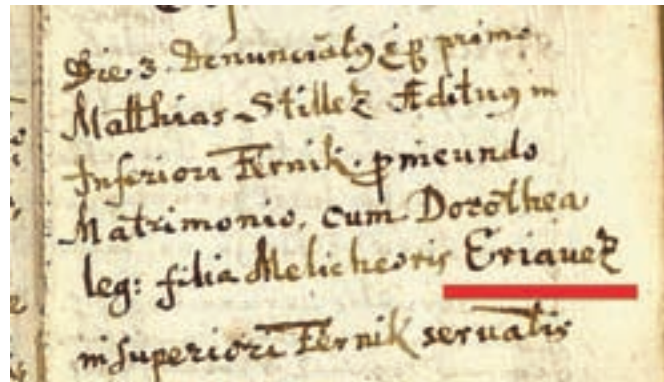 Die 3. Denunciatq ÷ p primo
Matthias Stillez Æditug in
Inferiori Fernik. p ineundo
Matrimonio, cum Dorothea
leg: filia Melicheoris Eriavez
in superiori Fernik servatis